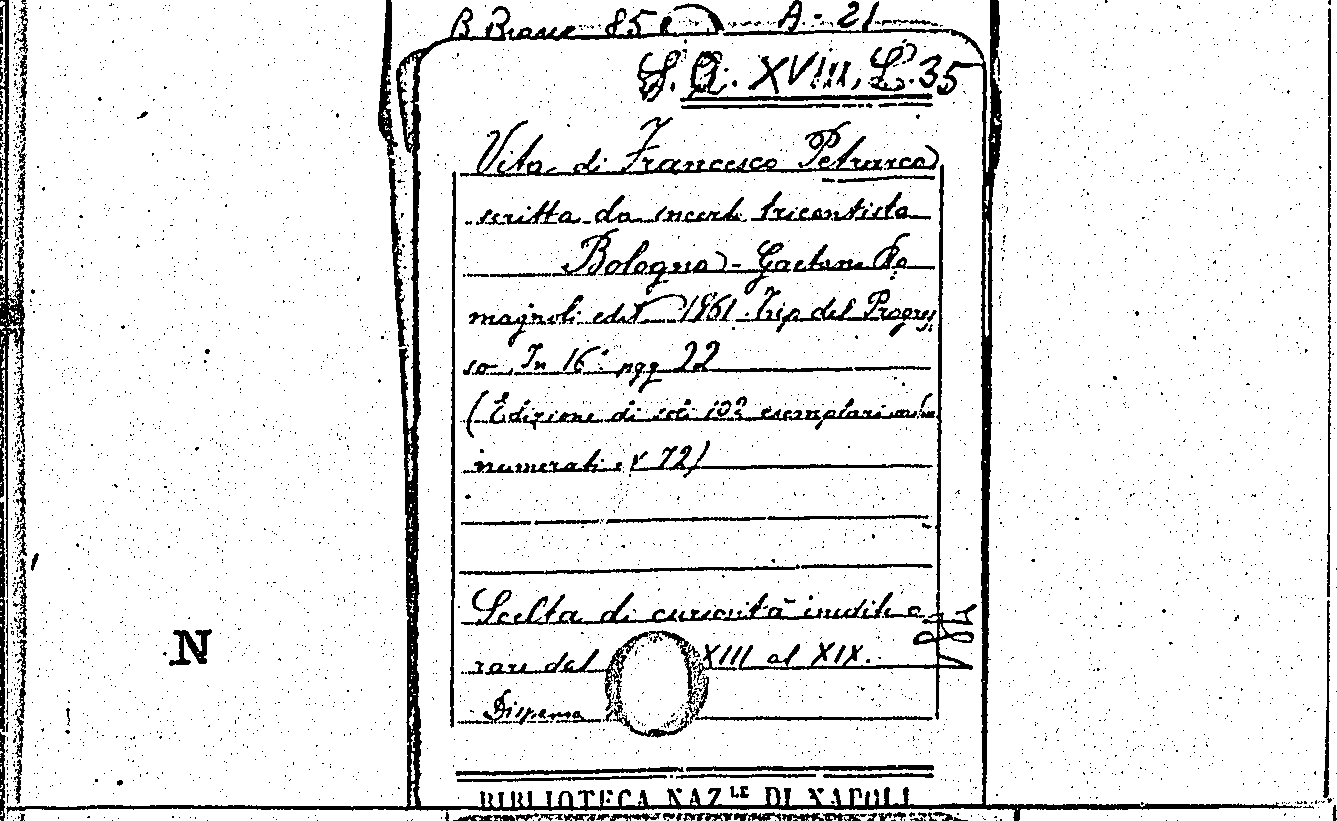 B. Branc 85 A-21
S. Q. XVIII. L. 35
Vita di Francesco Petrarca
scritta da incerto trecentista
Bologna - Gaetano Ro
magnoli edit 1861. Tip. del Progres
so. In 16° pgg 22
(Edizione di soli 102 esemplari
numerati. 72)
Scelta di curiosità inedite o
rare dal XIII al XIX.
Dispensa
N
BIBLIOTECA NAZ.LE DI NAPOLI